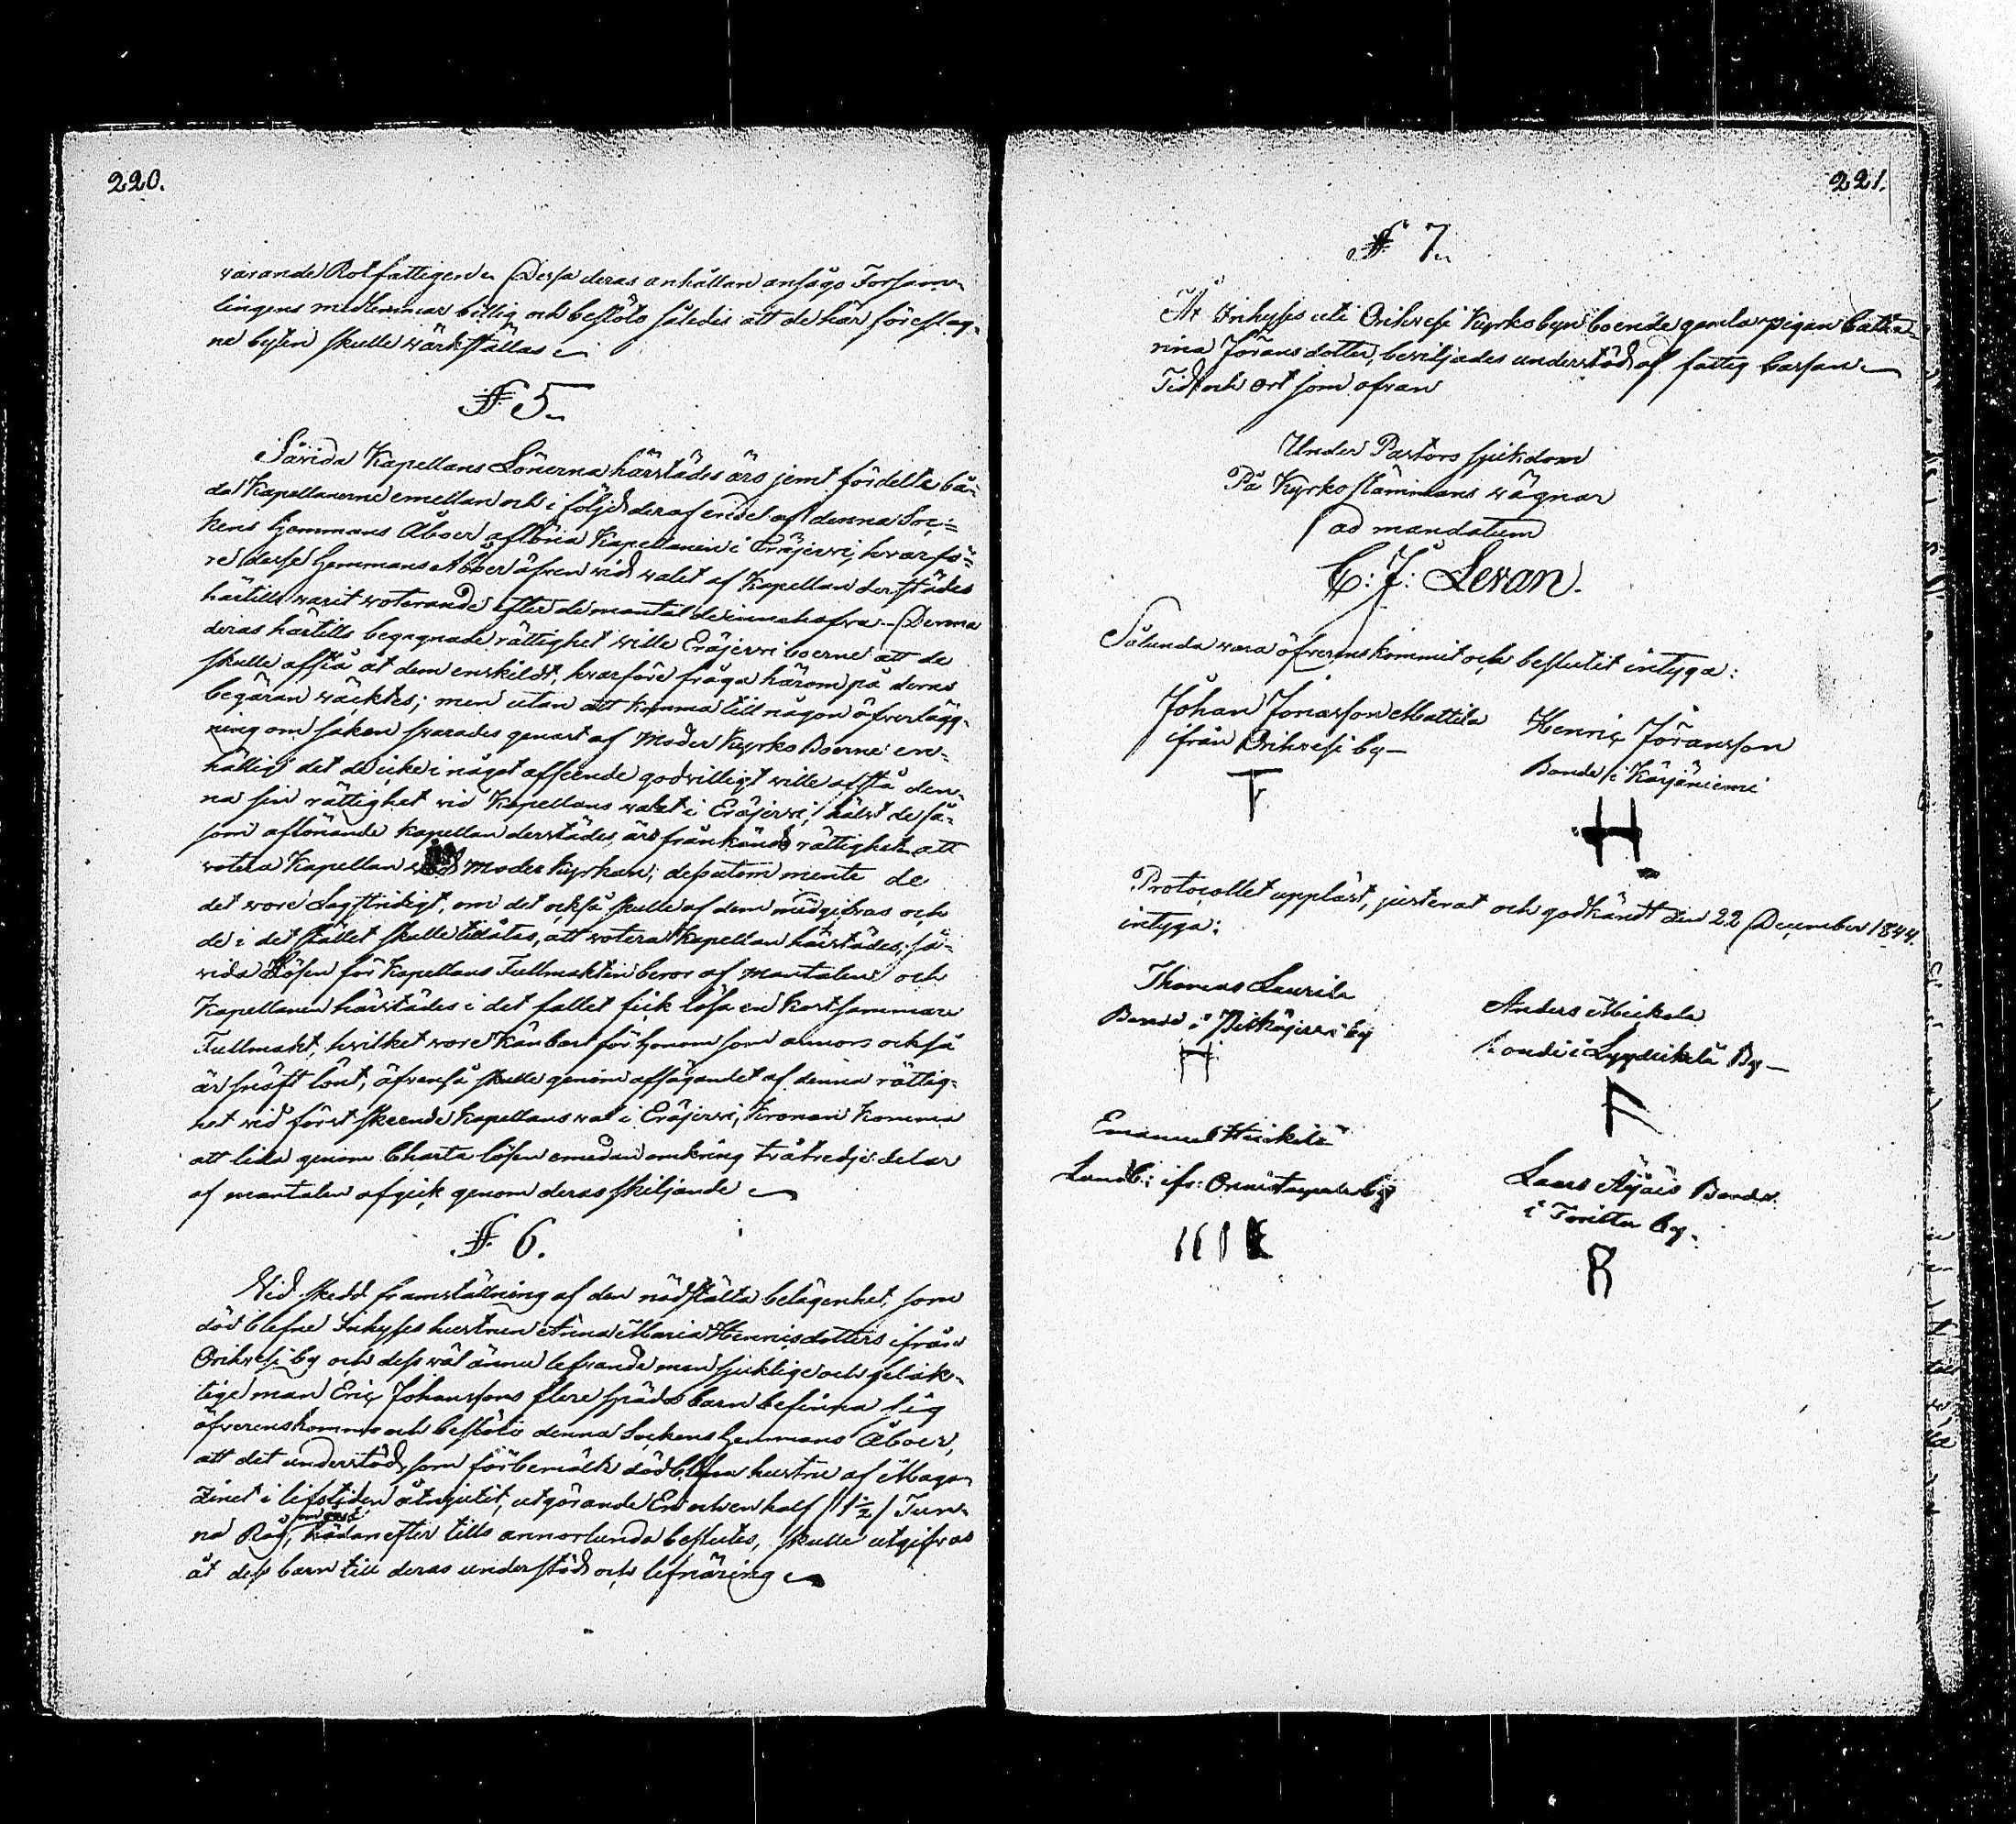 220.
varande Rotfattigen. Dessa deras anhållan ansågo Försam-
lingens medlemmar billig och beslöto således att de här föreslag-
ne byten skulle värkställas
§ 5.
Såvida Kapellans Lönerna härstädes äro jemt fördelte bå-
da Kapellanerne emellan och i följd deraf endel af denna Soc-
kens hemmans Åboer aflöna Kapellanen i Eräjervi, hvarfö-
re desse hemmans Åboer äfven vid valet af Kapellan derstädes
härtills varit voterande efter de mantal de innehafva. Denna
deras härtills begagnade rättighet ville Eräjerviboerne att de
skulle afstå åt dem enskildt, hvarföre fråga härom på deras
begäran väcktes; men utan att komma till någon öfverlägg-
ning om saken svarades genast af Moder Kyrko Boerne en-
hälligt det de icke i något afseende godvilligt ville afstå den-
na sin rättighet vid Kapellans valet i Eräjervi, hälst de så-
som aflönande kapellan derstädes äro frånkände rättighet att
votera Kapellan vid Moder Kyrkan; dessutom mente de
det vore Lagstridigt, om det också skulle af dem medgifvas och
de i det stället skulle tillåtas, att votera Kapellan härstädes, så-
vida Lösen för Kapellans Fullmakten beror af Mantalen och
Kapellanen härstädes i det fallet fick lösa en kostsammare
Fullmakt, hvilket vore känbart för honom som annors också
är knaft lönt, äfvenså skulle genom afsägandet af denna rättig-
het vid först skeende Kapellans val i Eräjervi, Kronan komma
att lida genom Charta lösen emedan omkring två tredje delar
af mantalen afgick genom deras skiljande
§ 6.
Vid skedd framställning af den nödställta belägenhet, som
död blefne Inhyses hustrun Anna Maria Henricsdotters ifrån
Orihvesi by och dess väl ännu lefvande men sjuklige och felak-
tige man Eric Johanssons flere späda barn befinna sig
öfverenskommo och beslöto denna Sockens hemmans Åboer,
att det understöd, som förbemälte död blefna hustru af Maga-
zinet i lifstiden åtnjutit, utgörande En och en half /1½/ Tun-
na Råg, hädanefter tills annorlunda beslutes, skulle utgifvas
åt dess barn till deras understöd och lifnäring
221.
§ 7.
Åt Inhyses uti Orihvesi Kyrkobyn boende gamla pigan Catha-
rina Jöransdotter, beviljades understöd af fattig Cassan
Tid och ort som ofvan
Under Pastors sjukdom
På Kyrkostämmans vägnar
ad mandatum
C: J: Levan.
Sålunda vara öfverenskommit och beslutit intyga:
Johan Jonasson Mattila
ifrån Orihvesi by
Henric Jöransson
Bonde i Karjäniemi
Protocollet uppläst, justerat och godkändt den 22 December 1844.
intyga:
Thomas Laurila
Bonde i Pitkäjervi by
H
Anders Mickola
bonde i Lyydikälä By
Emanuel
Landb: ifr: by
Lars Äijäis Bonde
i Torittu by.